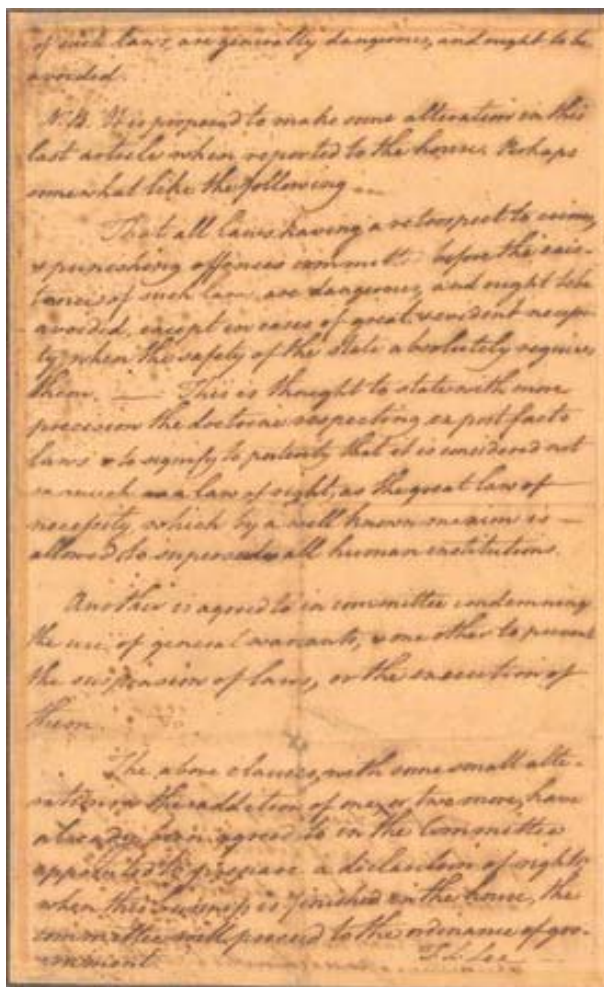 of such laws, are generally dangerous, and ought to be
avoided.
N.B. It is proposed to make some alteration in this
last article when reported to the house. Perhaps
somewhat like the following —
That all laws having a retrospect to crimes,
& punishing offences committed before the exis-
tence of such laws, are dangerous, and ought to be
avoided, except in cases of great, & evident necessi-
ty, when the safety of the state absolutely requires
them. — This is thought to state with more
precision the doctrine respecting ex post facto
laws & to signify to posterity that it is considered not
so much as a law of right, as the great law of
necessity, which by a well known maxim is —
allowed to supersede all human institutions.
Another is agreed to in committee condemning
the use of general warrants; & one other to prevent
the suspension of laws, or the execution of
them.
The above clauses, with some small alte-
rations, & the addition of one, or two more, have
already been agreed to in the Committee
appointed to prepare a declaration of rights;
when this business is finished in the house, the
committee will proceed to the ordinance of gov-
ernment.
T. L. Lee